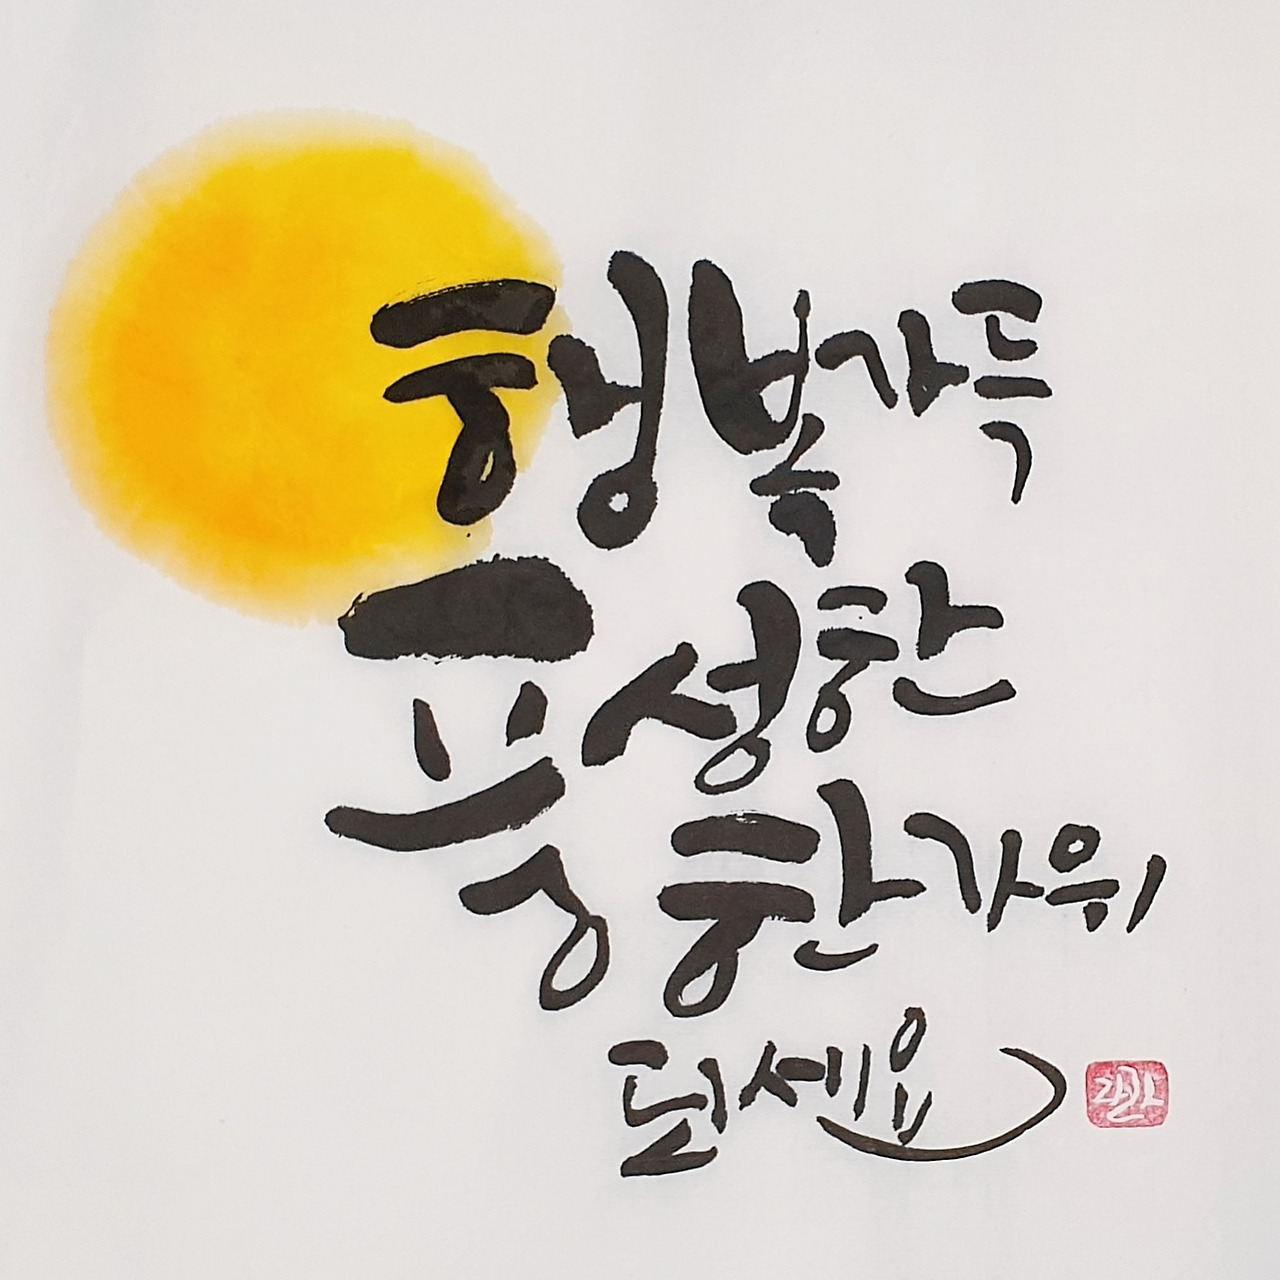 행복가득
풍성한
한가위
되세요